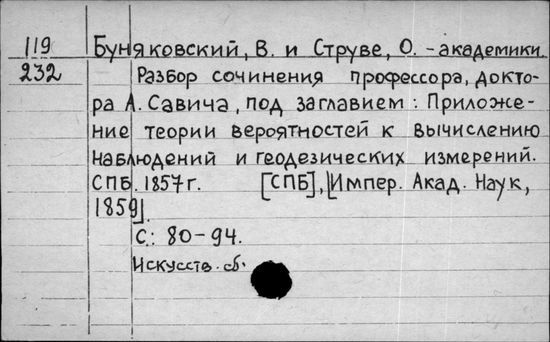 119 Буняковский, В. и Струве, О. - академики.
232 Разбор сочинения профессора, докто-
ра А. Савича, под заглавием: Приложе-
ние теории вероятностей к вычислению
наблюдений и геодезических измерений.
СПБ. 1857г. [СПБ], [Импер. Акад. Наук,
1859].
С.: 80-94.
Искусств. сб.